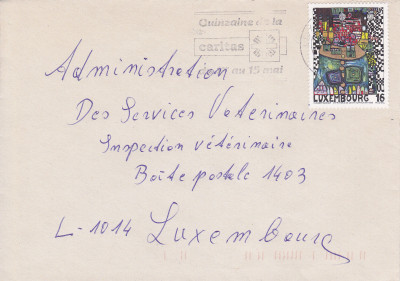 Quinzaine de la
caritas
au 15 mai
LUXEMBOURG 16
Administration
Des Services Veterinaires
Inspection vétérinaire
Boîte postale 1403
L-1014 Luxembourg